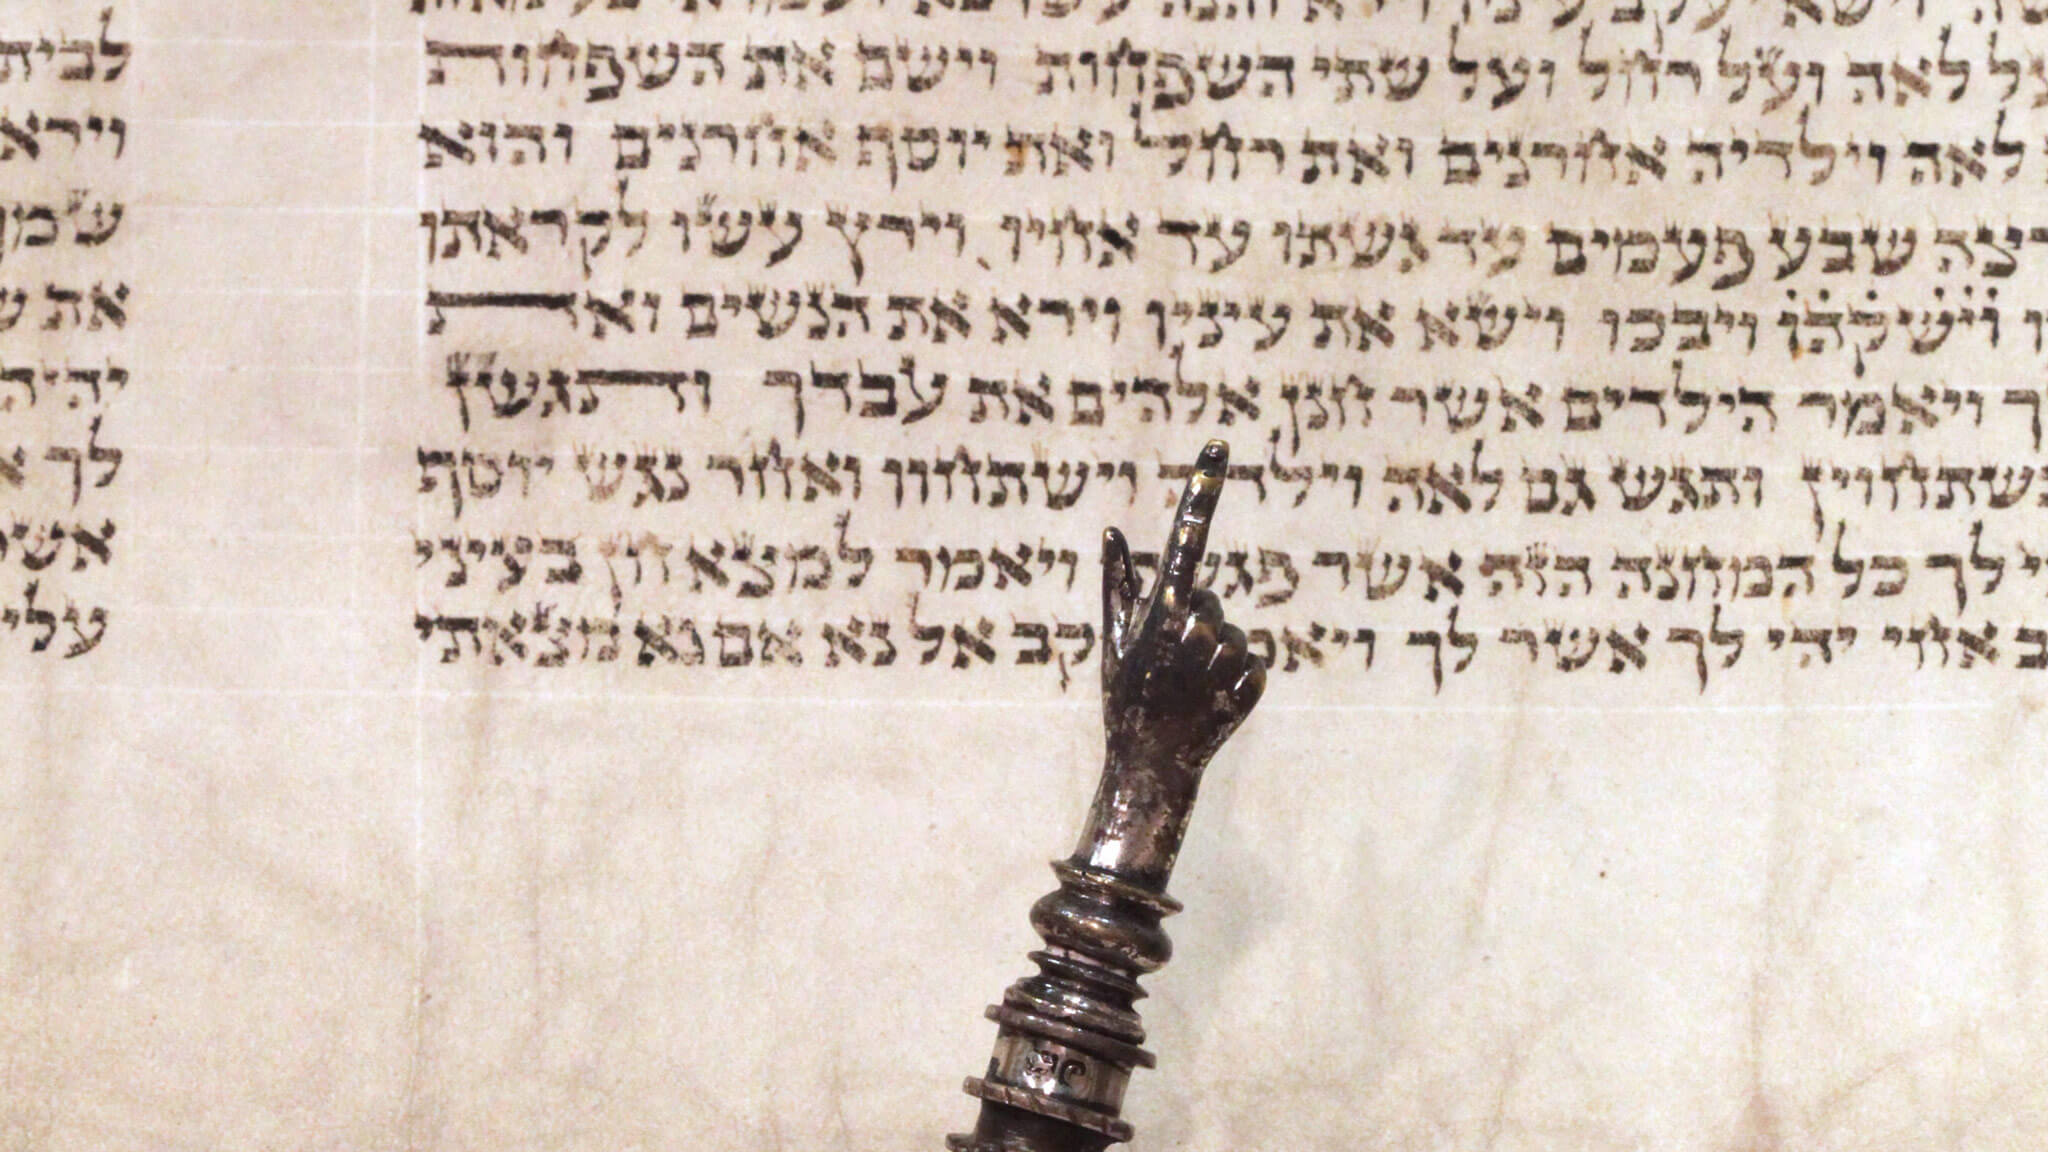 על לאה ועל רחל ועל שתי השפחות וישם את השפחות
לאה וילדיה אחרנים ואת רחל ואת יוסף אחרנים והוא
רצה שבע פעמים עד גשתו עד אחיו וירץ עשו לקראתו
וישקהו ויבכו וישא את עיניו וירא את הנשים ואת
ך ויאמר הילדים אשר חנן אלהים את עבדך ותגשן
שתחוין ותגש גם לאה וילדיה וישתחוו ואחר נגש יוסף
י לך כל המחנה הזה אשר פגשתי ויאמר למצא חן בעיני
ב אחי יהי לך אשר לך ויאמ קב אל נא אם נא מצאתי
וירא
את
לך